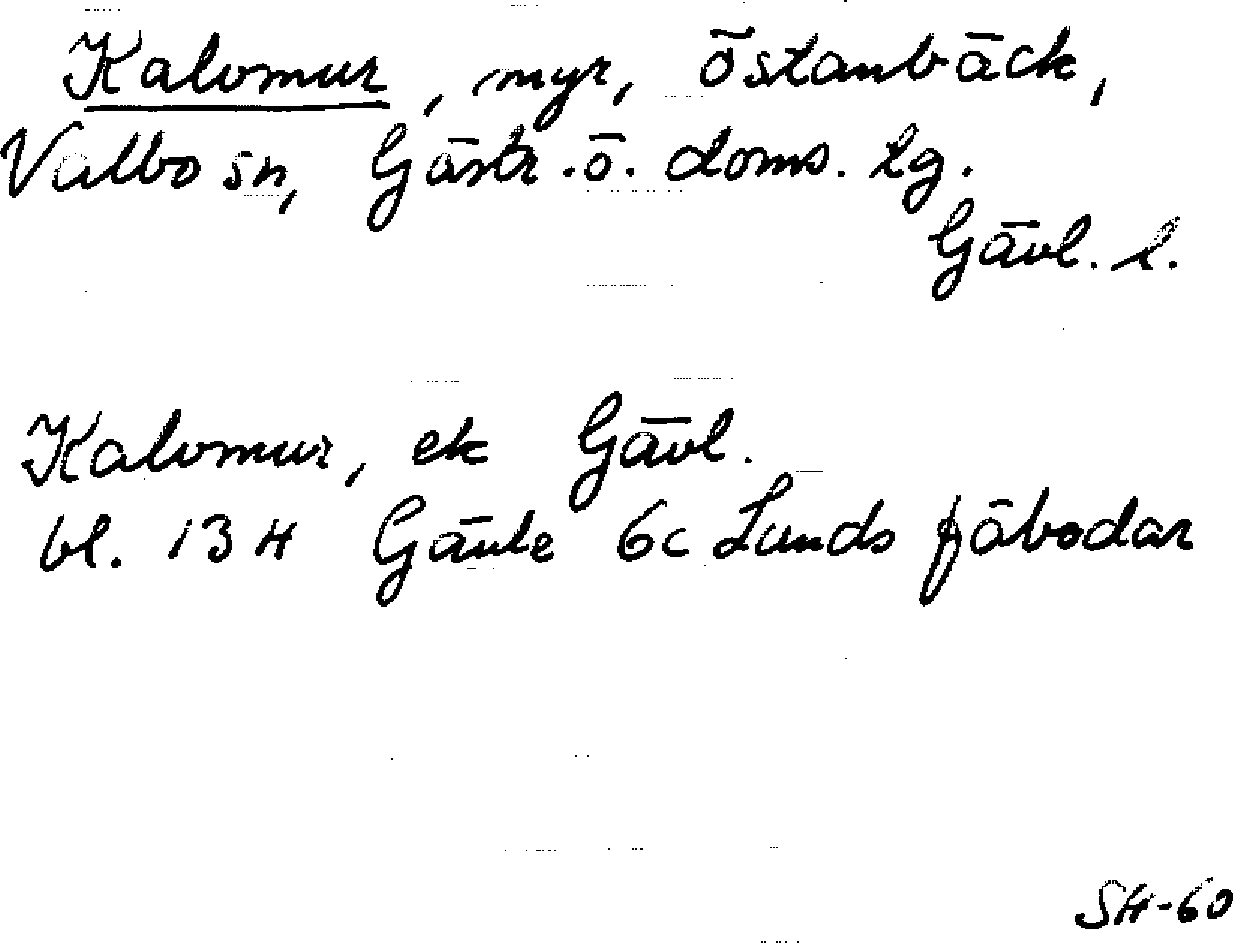 Kalvmur, myr, Östanbäck,
Valbo sn, Gästr.ö. doms. tg.
Gävl. l.
Kalvmur, ek Gävl.
bl. 13H Gävle 6c Lunds fäbodar
SH-60